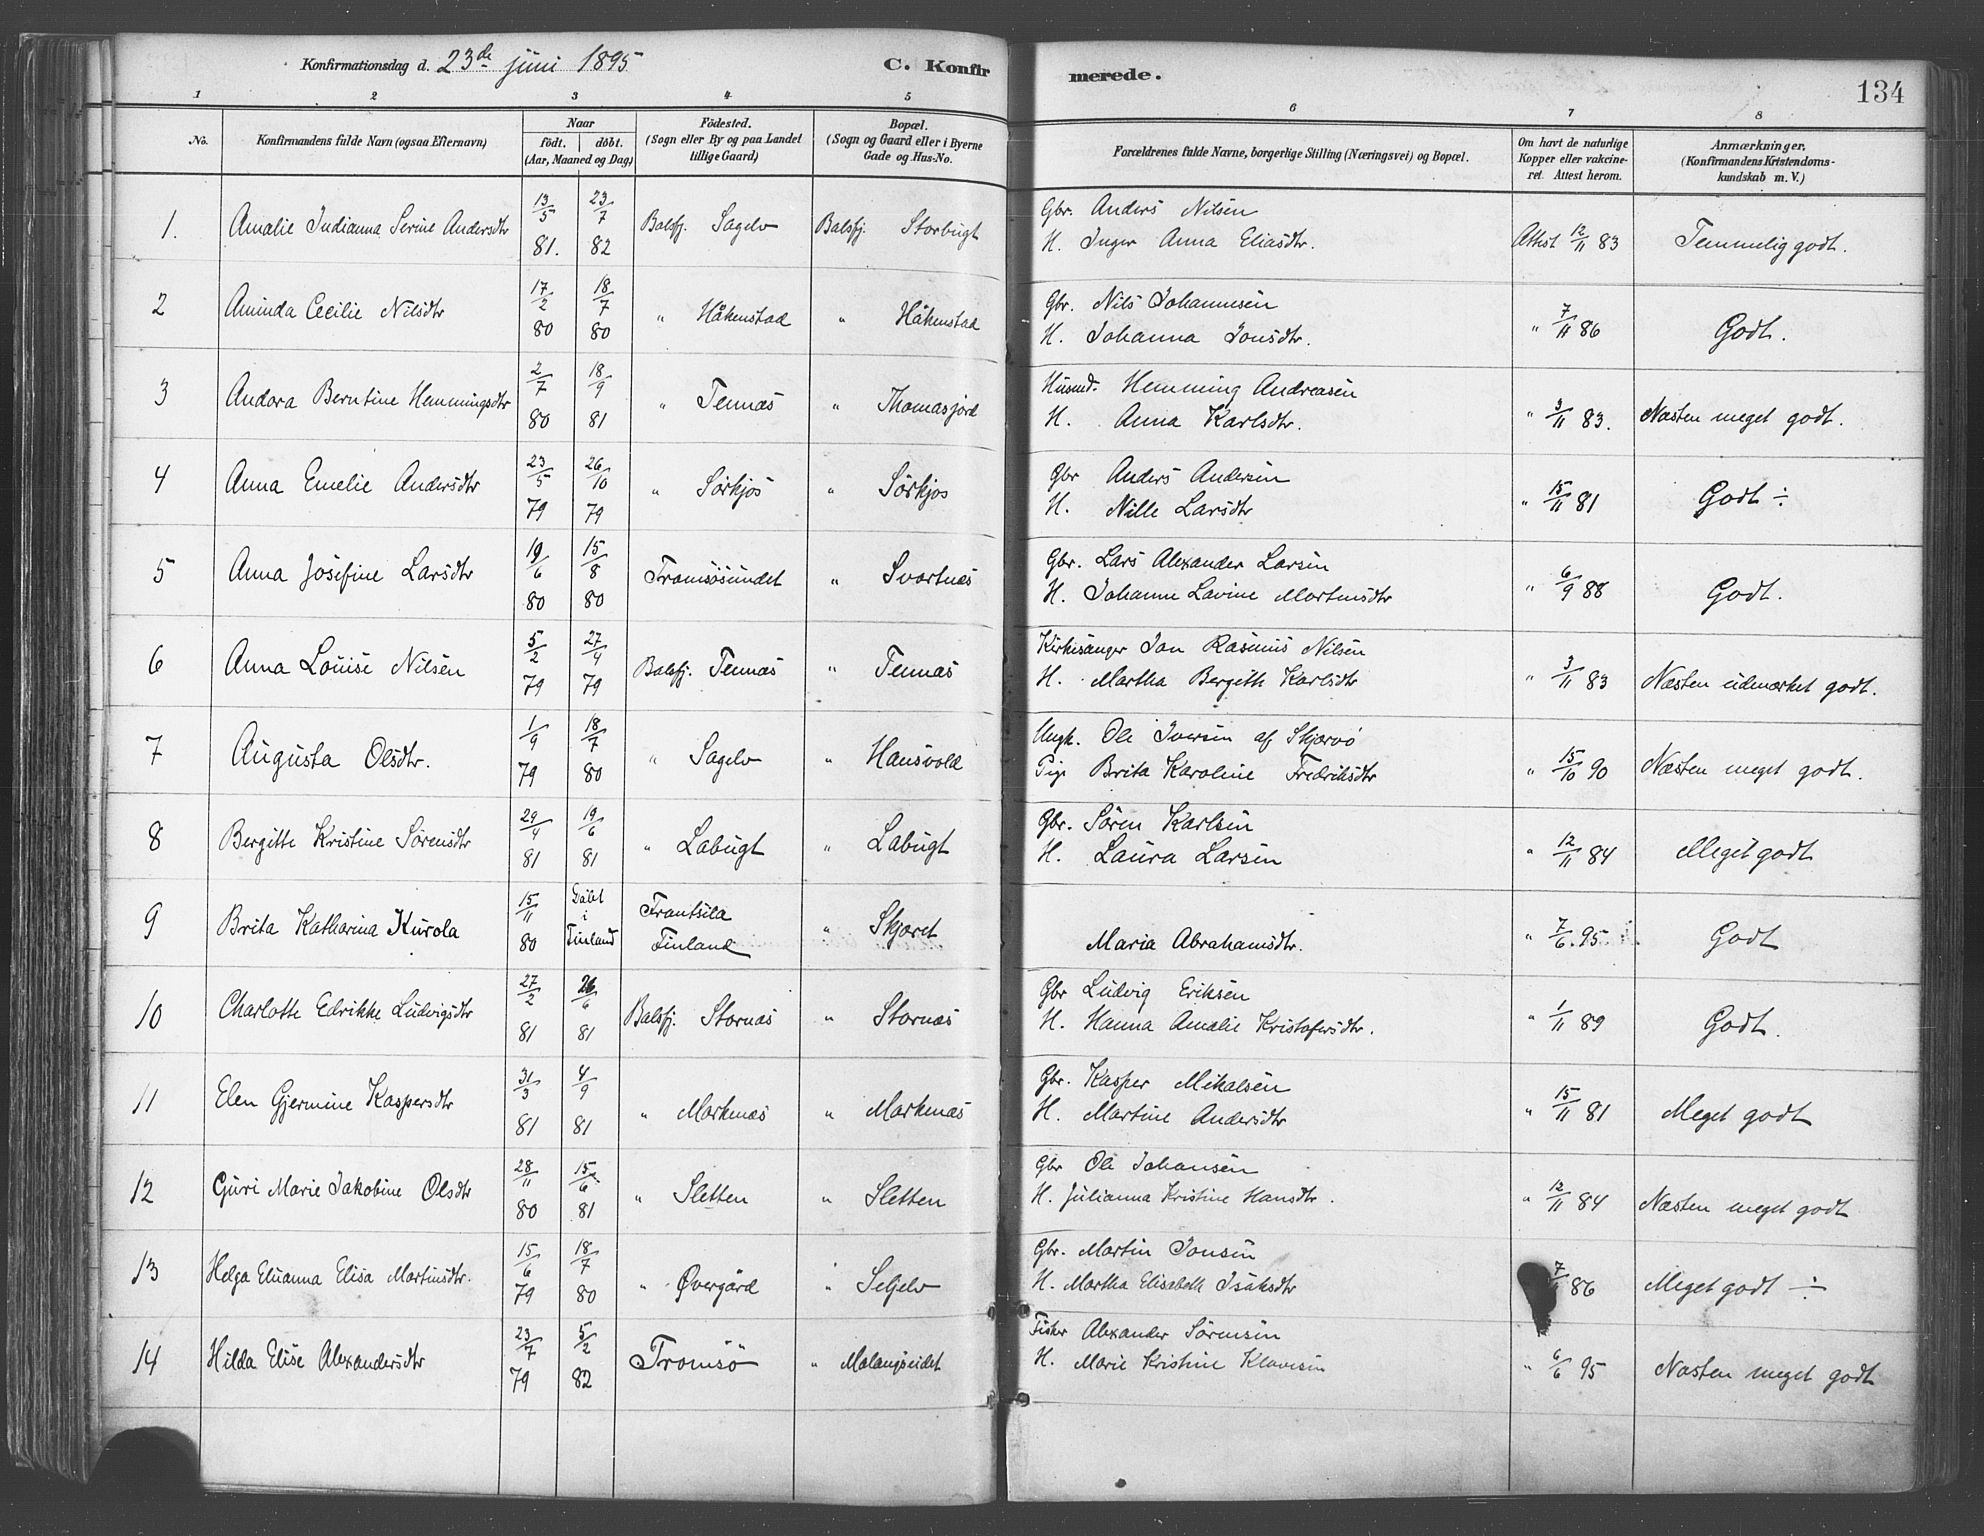 Konfirmationsdag d. 23de juni 1895
C. Konfirmerede.
134
1 2 3 4 5 6 7 8
No. | Konfirmandens fulde Navn (ogsaa Efternavn) | Naar födt. döbt. (Aar, Maaned og Dag) | Födested. (Sogn eller By og paa Landet tillige Gaard) | Bopæl. (Sogn og Gaard eller i Byerne Gade og Hus-No.) | Forældrenes fulde Navne, borgerlige Stilling (Næringsvei) og Bopæl. | Om havt de naturlige Kopper eller vakcineret. Attest herom. | Anmærkninger. (Konfirmandens Kristendomskundskab m. V.)
1. | Amalie Indianna Serine Andersdtr | 13/5 81. | 23/7 82 | Balsfj. Sagelv | Balsfj. Storbugt | Gbr. Anders Nilsen H. Inger Anna Eliasdtr. | Attest 12/11 83 | Temmelig godt.
2 | Aminda Cecilie Nilsdtr | 17/2 80 | 18/7 80 | " Håkenstad | " Håkenstad | Gbr. Nils Johannesen H. Johanna Jonsdtr. | " 7/11 86 | Godt.
3 | Andora Berntine Hemmingsdtr | 2/7 80 | 18/9 81 | " Tennæs | " Thomasjord | Husmd. Hemming Andreasen H. Anna Karlsdtr. | " 3/11 83. | Næsten meget godt.
4 | Anna Emelie Andersdtr | 23/5 79 | 26/10 79 | " Sørkjos | " Sørkjos | Gbr Anders Andersen H. Nille Larsdtr | " 15/11 81 | Godt ÷
5 | Anna Josefine Larsdtr | 19/6 80 | 15/8 80 | Tromsösundet | " Svartnæs | Gbr. Lars Alexander Larsen H. Johanne Lavine Martinsdtr | " 6/9 88 | Godt.
6 | Anna Louise Nilsen | 5/2 79 | 27/4 79 | Balsfj. Tennæs | " Tennæs | Kirkesanger Jon Rasmus Nilsen H. Martha Bergith Karlsdtr | " 3/11 83 | Næsten udmærket godt.
7 | Augusta Olsdtr. | 1/9 79 | 18/7 80 | " Sagelv | " Hansvold | Ungk. Ole Iversen af Skjærvö Pige Brita Karoline Fredriksdtr | " 15/10 90 | Næsten meget godt.
8 | Bergitte Kristine Sörensdtr | 29/4 81 | 19/6 81 | " Labugt | " Labugt | Gbr. Sören Karlsen H. Laura Larsen | " 12/11 84 | Meget godt
9 | Brita Katharina Kurola | 15/11 80 | Döbt i Finland | Frantsila Finland | " Skjæret | Maria Abrahamsdtr. | " 7/6. 95 | Godt
10 | Charlotte Edrikke Ludvigsdtr | 27/2 81 | 26/6 81 | Balsfj. Stornæs | " Stornæs | Gbr Ludvig Eriksen H. Hanna Amalie Kristofersdtr. | " 1/11 89 | Godt.
11 | Elen Gjermine Kaspersdtr | 31/3 81 | 4/9 81 | " Markenæs | " Markenæs | Gbr. Kasper Mikalsen H. Martine Andersdtr | " 15/11 81 | Meget godt
12 | Guri Marie Jakobine Olsdtr | 28/11 80 | 15/6. 81 | " Sletten | " Sletten | Gbr Ole Johansen H. Julianna Kristine Hansdtr. | " 12/11 84 | Næsten meget godt
13 | Helga Elianna Elisa Martinsdtr. | 15/6 79 | 18/7 80 | " Øvergård | " Seljelv | Gbr. Martin Jonsen H. Martha Elisabeth Isaksdtr | 7 86 | Meget godt ÷
14 | Hilda Elise Alexandersdtr | 23/7 79 | 5/2 82 | Tromsö | " Malangseidet | Fisker Alexander Sörensen H. Marie Kristine Klavesen | " 6/6 95 | Næsten meget godt